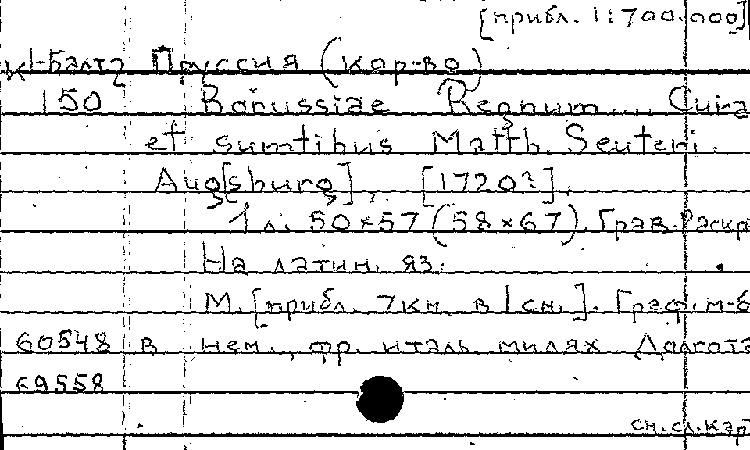 [прибл. 1:700.000]
К1-Балт 2 Пруссия (кор-во)
150 Borussiae Regnum.... Cura
et sumtibus Matth. Seuteri.
Aug[sburg], [1720?].
1 л. 50×57 (58×67). Грав. Раскр
На латин. яз.
М. [прибл. 7км. в 1см.]. Граф. м-б
60548 в нем., фр. италь. милях Долгота
69558
см. сл. кар